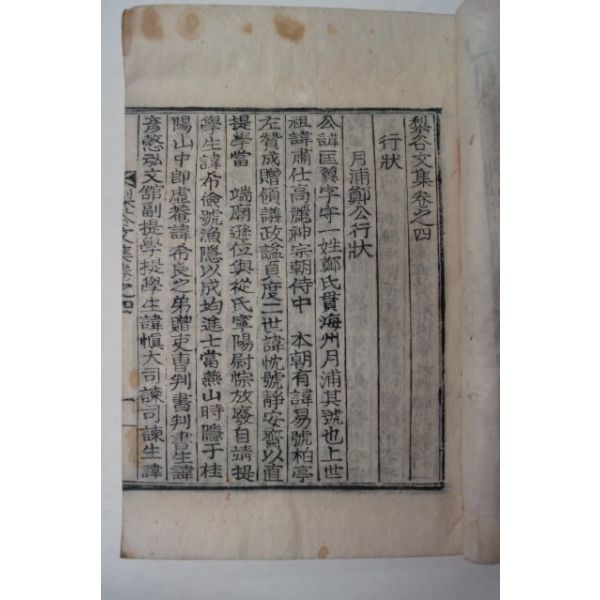 梨谷文集卷之四
行狀
月浦鄭公行狀
公諱匡翼字守一姓鄭氏貫海州月浦其號也上世
祖諱肅仕高麗神宗朝侍中 本朝有諱易號栢亭
左贊成贈領議政謚貞度二世諱忱號靜安齋以直
提學當 端廟遜位與從氏寧陽尉悰放廢自靖提
學生諱希儉號漁隱以成均進士當燕山時隱于桂
陽山中卽虛菴諱希良之弟贈吏曹判書判書生諱
彦慤弘文舘副提學提學生諱愼大司諫司諫生諱
梨谷文集卷之四 一